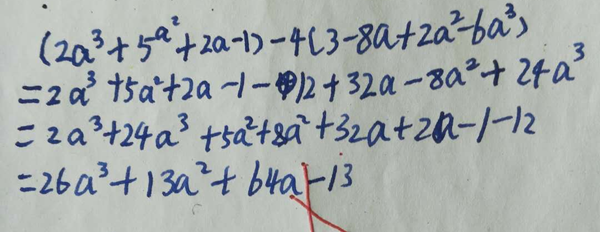 (2a³+5^a²+2a-1)-4(3-8a+2a²-6a³)
=2a³+5a²+2a-1-12+32a-8a²+24a³
=2a³+24a³+5a²+8a²+32a+2a-1-12
=26a³+13a²+64a-13